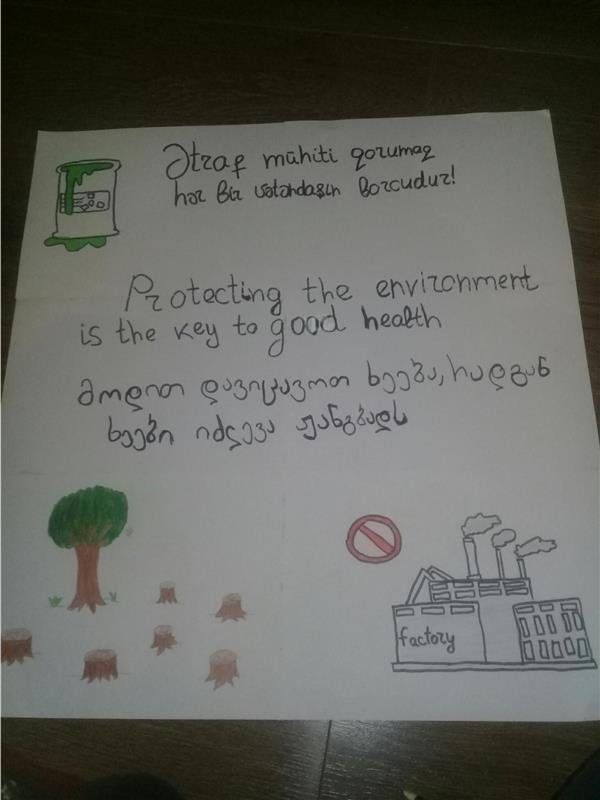 Ətraf mühiti qorumaq
hər Bir vətəndaşın borcudur!
Protecting the environment
is the key to good health
მოდით დავიცავოთ ხეება, რადგან
ხეები იძლევა ჟანგბადს
factory